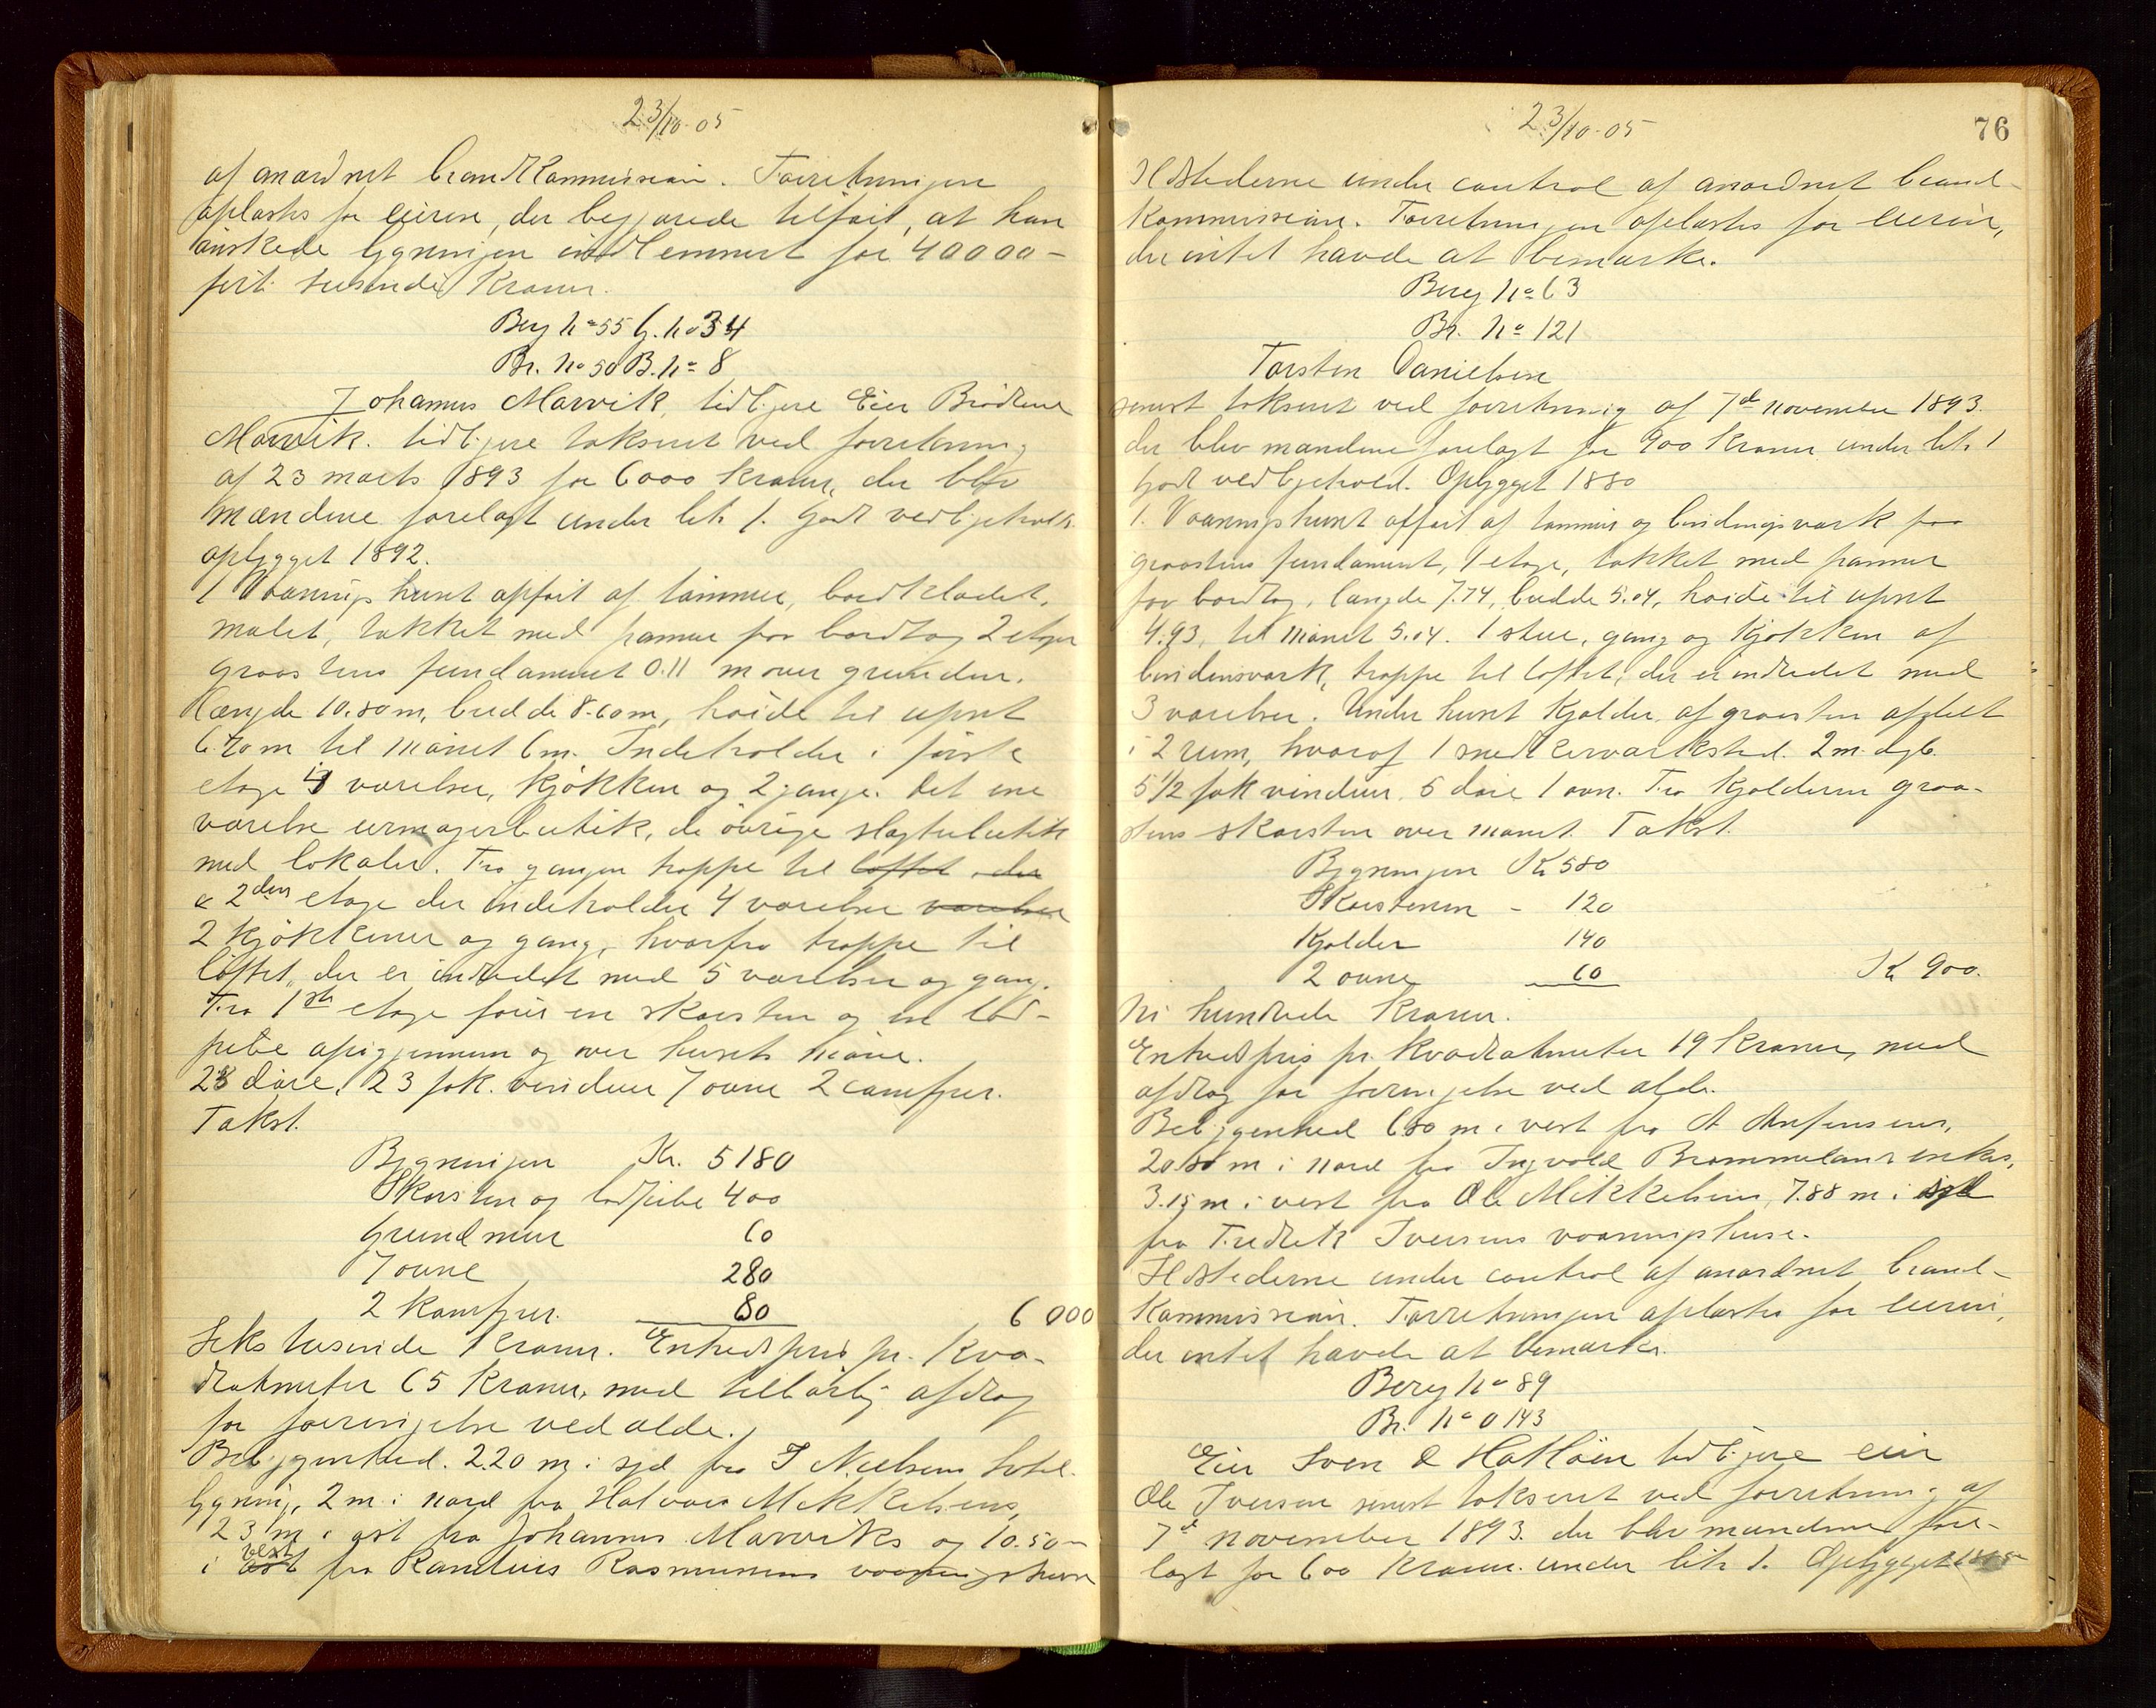 23/10-05
af anordnet brandkommission. Forretningen
oplæstes for eieren, der begjærede tilført, at han
ønskede bygningen indlemmet for 40000-
firti tusinde kroner.
Berg No 55 G. No 34
Br. No 50 B. No 8
Johannes Marvik, tidligere Eier Brødrene
Marvik. tidligere takseret ved forretning
af 23 marts 1893 for 6000 kroner, der blev
mændene forelagt under litr 1. Godt vedligeholdt
opbygget 1892.
1 Vaaningshuset opført af tømmer, bordklædet,
malet, tækket med panner paa bordtag 2 etager
graastens fundament 0.11 m over grunden.
Længde 10.80 m, bredde 8.60 m, høide til opset
6.70 m til mønet 6 m. Indeholder i første
etage 4 værelser, kjøkken og 2 gange. Det ene
værelse urmagerbutik, de øvrige slagterbutik
med lokaler. Fra gangen trappe til loftet der
2den etage der indeholder 4 værelser værelser
2 kjøkkener og gang, hvorfra trappe til
loftet, der er indredet med 5 værelser og gang.
Fra 1ste etage fører en skorsten og en lød-
pibe opigjennem og over husets møne.
28 døre, 23 fok. vinduer 7 ovne 2 comfyrer.
Takst.
Bygningen Kr. 5180
Skorsten og lødpibe 400
Grundmur 60
7 ovne 280
2 komfyrer. 80 6000
Seks tusinde kroner. Enhedspris pr. kva-
dratmeter 65 kroner, med tilbørlig afdrag
for forringelse ved ælde.
Bebyggenhed. 2.20 m i syd fra I Nielsens hotel-
bygning, 2 m i nord fra Halvor Mikkelsens,
23 m i øst fra Johannes Marviks og 10.50 m
i øst vest fra Rasmus Rasmussens vaaningshuse
23/10-05
76
Ildstederne under control af anordnet brand-
kommission. Forretningen oplæstes for eieren,
der intet havde at bemærke.
Berg No 63
Br. No 121
Torsten Danielsen
senest takseret ved forretning af 7de november 1893.
der blev mændene forelagt for 900 kroner under litr 1
Godt vedligehold. Opbygget 1880
1. Vaaningshuset opført af tømmer og bindingsværk paa
graastens fundament, 1 etage, tækket med panner
paa bordtag, længde 7.74, bredde 5.04, høide til opset
4.93, til mønet 5.04. 1 stue, gang og kjøkken af
bindensværk, trappe til loftet, der er indredet med
3 værelser. Under huset kjælder af graasten afdelt
i 2 rum, hvoraf 1 snedkerværksted. 2 m. dyb
5 1/2 fok vinduer. 5 døre 1 ovn. Fra kjælderen graa-
stens skorsten over mønet. Takst.
Bygningen Kr 580
Skorstenen - 120
Kjælder 140
2 ovne 60 Kr 900.
Ni hundrede kroner.
Enhedspris pr. kvadratmeter 19 kroner, med
afdrag for forringelse ved ælde.
Bebyggenhed 6.80 m i vest fra A Anfinsens,
20.80 m i nord fra Ingvald Brommelands enkes,
3.15 m i vest fra Ole Mikkelsens, 7.88 m i syd
fra Fredrik Iversens vaaningshuse.
Ildstederne under control af anordnet brand-
kommission. Forretningen oplæstes for eieren,
der intet havde at bemærke.
Berg No 89
Br. No 0 143
Eier Sven Hatløen tidligere eier
Ole Iversen senest takseret ved forretning af
7de november 1893. der blev mændene fore-
lagt for 600 kroner under litr 1. Opbygget